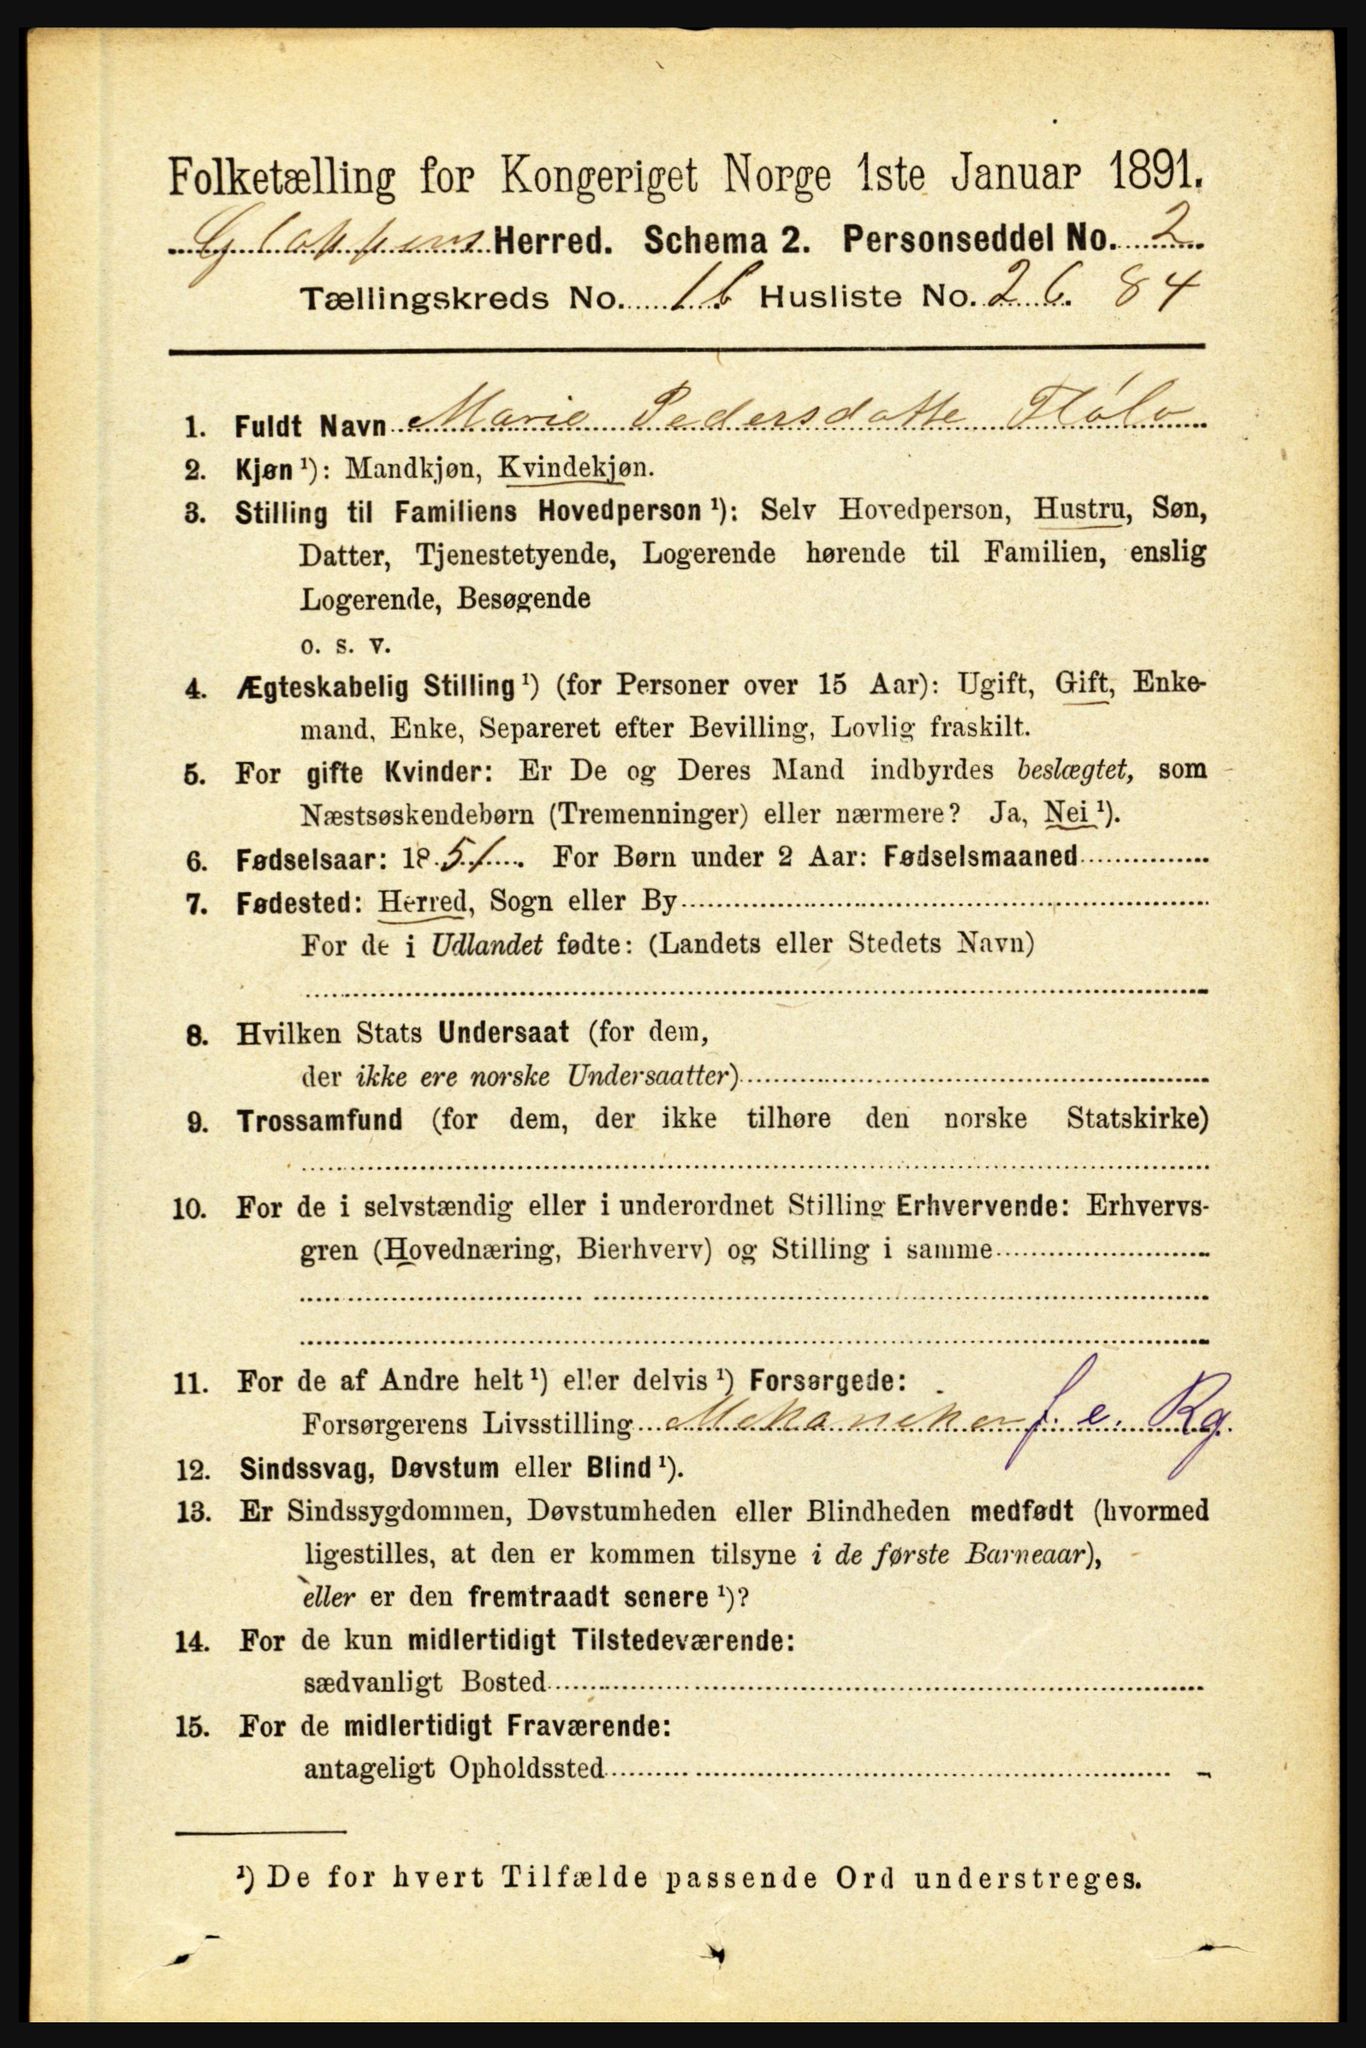 Folketælling for Kongeriget Norge 1ste Januar 1891.
Gloppens Herred. Schema 2. Personseddel No. 2
Tællingskreds No. 16 Husliste No. 26 84
1. Fuldt Navn Marie Pedersdatte Flølo
2. Kjøn ¹): Mandkjøn, Kvindekjøn.
3. Stilling til Familiens Hovedperson ¹): Selv Hovedperson, Hustru, Søn,
Datter, Tjenestetyende, Logerende hørende til Familien, enslig
Logerende, Besøgende
o. s. v.
4. Ægteskabelig Stilling ¹) (for Personer over 15 Aar): Ugift, Gift, Enke-
mand, Enke, Separeret efter Bevilling, Lovlig fraskilt.
5. For gifte Kvinder: Er De og Deres Mand indbyrdes beslægtet, som
Næstsøskendebørn (Tremenninger) eller nærmere? Ja, Nei ¹).
6. Fødselsaar: 1851. For Børn under 2 Aar: Fødselsmaaned
7. Fødested: Herred, Sogn eller By
For de i Udlandet fødte: (Landets eller Stedets Navn)
8. Hvilken Stats Undersaat (for dem,
der ikke ere norske Undersaatter)
9. Trossamfund (for dem, der ikke tilhøre den norske Statskirke)
10. For de i selvstændig eller i underordnet Stilling Erhvervende: Erhvervs-
gren (Hovednæring, Bierhverv) og Stilling i samme
11. For de af Andre helt ¹) eller delvis ¹) Forsørgede:
Forsørgerens Livsstilling Mekaneker f. e. Rg.
12. Sindssvag, Døvstum eller Blind ¹).
13. Er Sindssygdommen, Døvstumheden eller Blindheden medfødt (hvormed
ligestilles, at den er kommen tilsyne i de første Barneaar),
eller er den fremtraadt senere ¹)?
14. For de kun midlertidigt Tilstedeværende:
sædvanligt Bosted
15. For de midlertidigt Fraværende:
antageligt Opholdssted
¹) De for hvert Tilfælde passende Ord understreges.